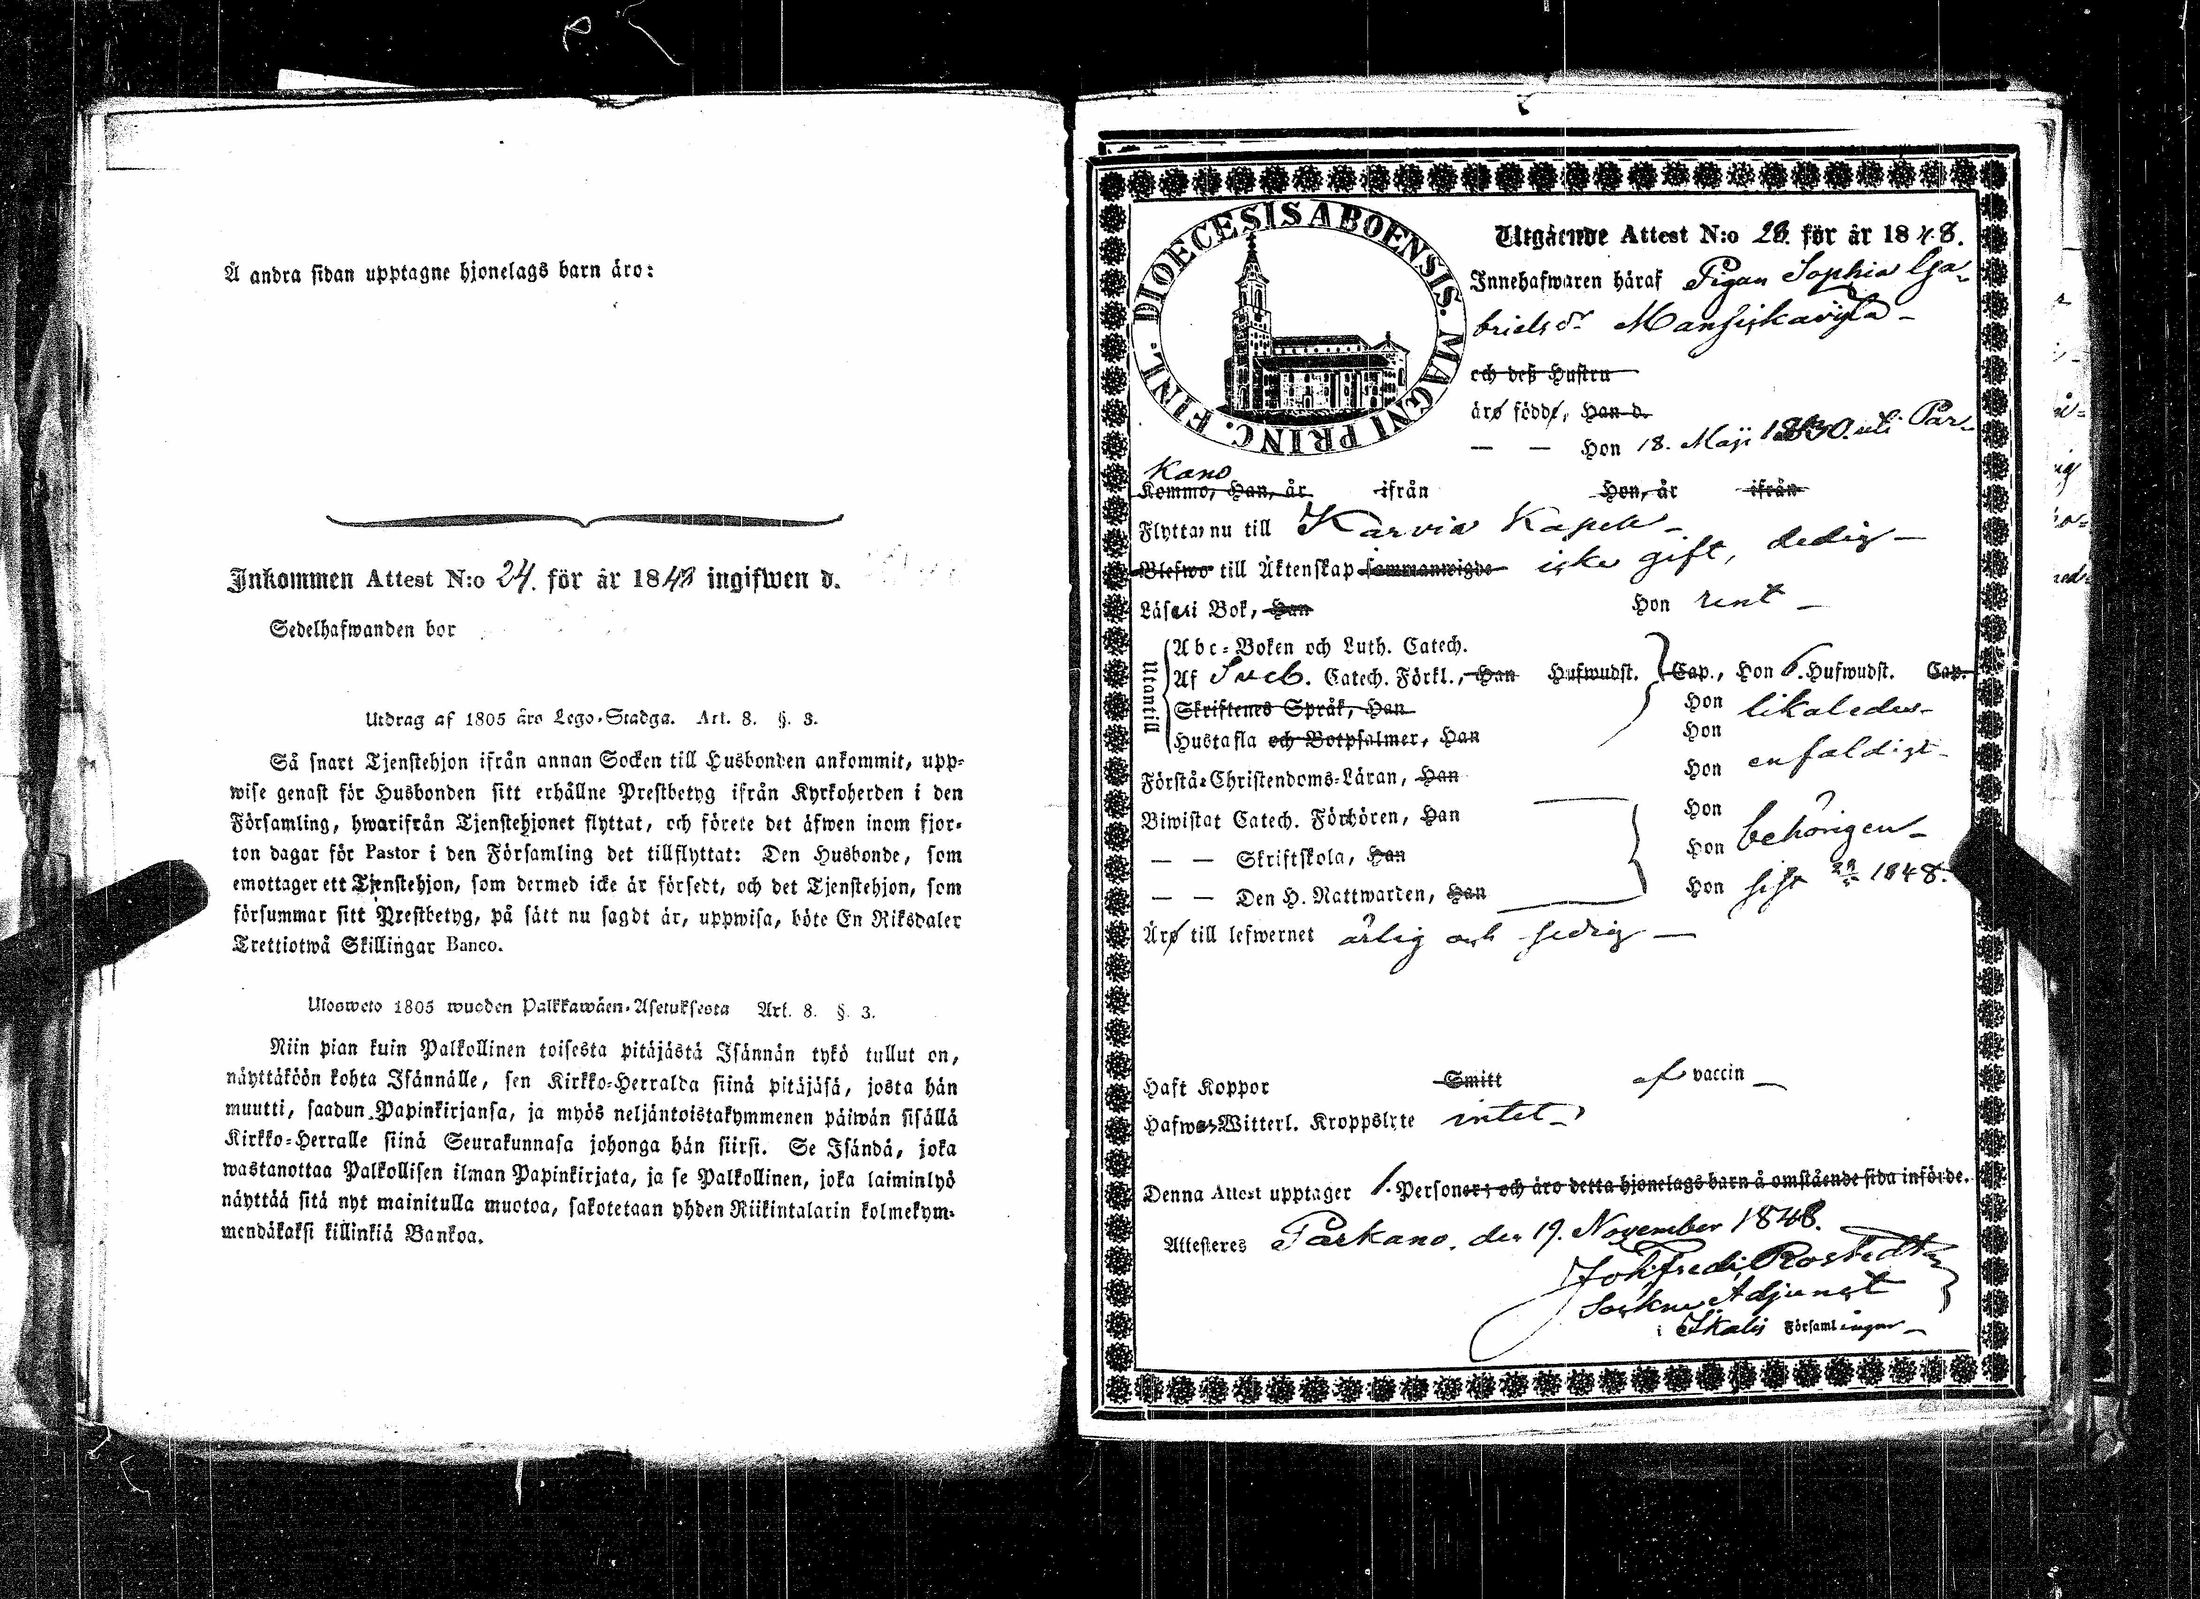 Å andra sidan upptagne hjonelags barn äro:
Inkommen Attest N:o 24. för år 1848 ingifwen d.
Sedelhafwanden bor
Utdrag af 1805 års Lego-Stadga. Art. 8. §. 3.
Så snart Tjenstehjon ifrån annan Socken till Husbonden ankommit, upp=
wise genast för Husbonden sitt erhållne Prestbetyg ifrån Kyrkoherden i den
Församling, hwarifrån Tjenstehjonet flyttat, och förete det äfwen inom fjor=
ton dagar för Pastor i den Församling det tillflyttat: Den Husbonde, som
emottager ett Tjenstehjon, som dermed icke är försedt, och det Tjenstehjon, som
försummar sitt Prestbetyg, på sätt nu sagdt är, uppwisa, böte En Riksdaler
Trettiotwå Skillingar Banco.
Ulosweto 1805 wuoden Palkkawäen-Asetuksesta Art. 8. §. 3.
Niin pian kuin Palkollinen toisesta pitäjästä Isännän tykö tullut on,
näyttäköön kohta Isännälle, sen Kirkko=Herralda siinä pitäjäsä, josta hän
muutti, saadun Papinkirjansa, ja myös neljäntoistakymmenen päiwän sisällä
Kirkko=Herralle siinä Seurakunnasa johonga hän siirsi. Se Isändä, joka
wastanottaa Palkollisen ilman Papinkirjata, ja se Palkollinen, joka laiminlyö
näyttää sitä nyt mainitulla muotoa, sakotetaan yhden Riikintalarin kolmekym=
mendäkaksi killinkiä Bankoa.
DIOECESIS ABOENSIS. MAGNI PRINC. FINL.
Utgående Attest N:o 28. för år 1848.
Innehafwaren häraf Pigan Sophia Ga-
brielsdr Mansiskaviita
och deß Hustru
äro födde, Han d.
— — Hon 18. Maji 1830. uti Par-
kano
Kommo, Han, år ifrån Hon, år ifrån
Flyttar nu till Karvia Kapell
Blefwo till Äktenskap sammanwigde icke gift, ledig
Läsa i Bok, Han Hon rent
Utantill
Abc=Boken och Luth. Catech.
Af Sveb. Catech. Förkl., Han Hufwudst. Cap., Hon 6. Hufwudst. Cap.
Skriftenes Språk, Han Hon likaledes
Hustafla och Botpsalmer, Han Hon
Förstå Christendoms=Läran, Han Hon enfaldigt
Biwistat Catech. Förhören, Han Hon
— — Skriftskola, Han Hon behörigen
— — Den H. Nattwarden, Han Hon sist 1848.
Äro till lefwernet ärlig och sedig
Haft Koppor Smitt af vaccin
Hafwer Witterl. Kroppslyte intet
Denna Attest upptager 1. Personer; och äro detta hjonelags barn å omstående sida införde.
Attesteres Parkano, den 19. November 1848.
Joh. Fredr. Rostedt
Sockne Adjunct
i Ikalis Församlingar